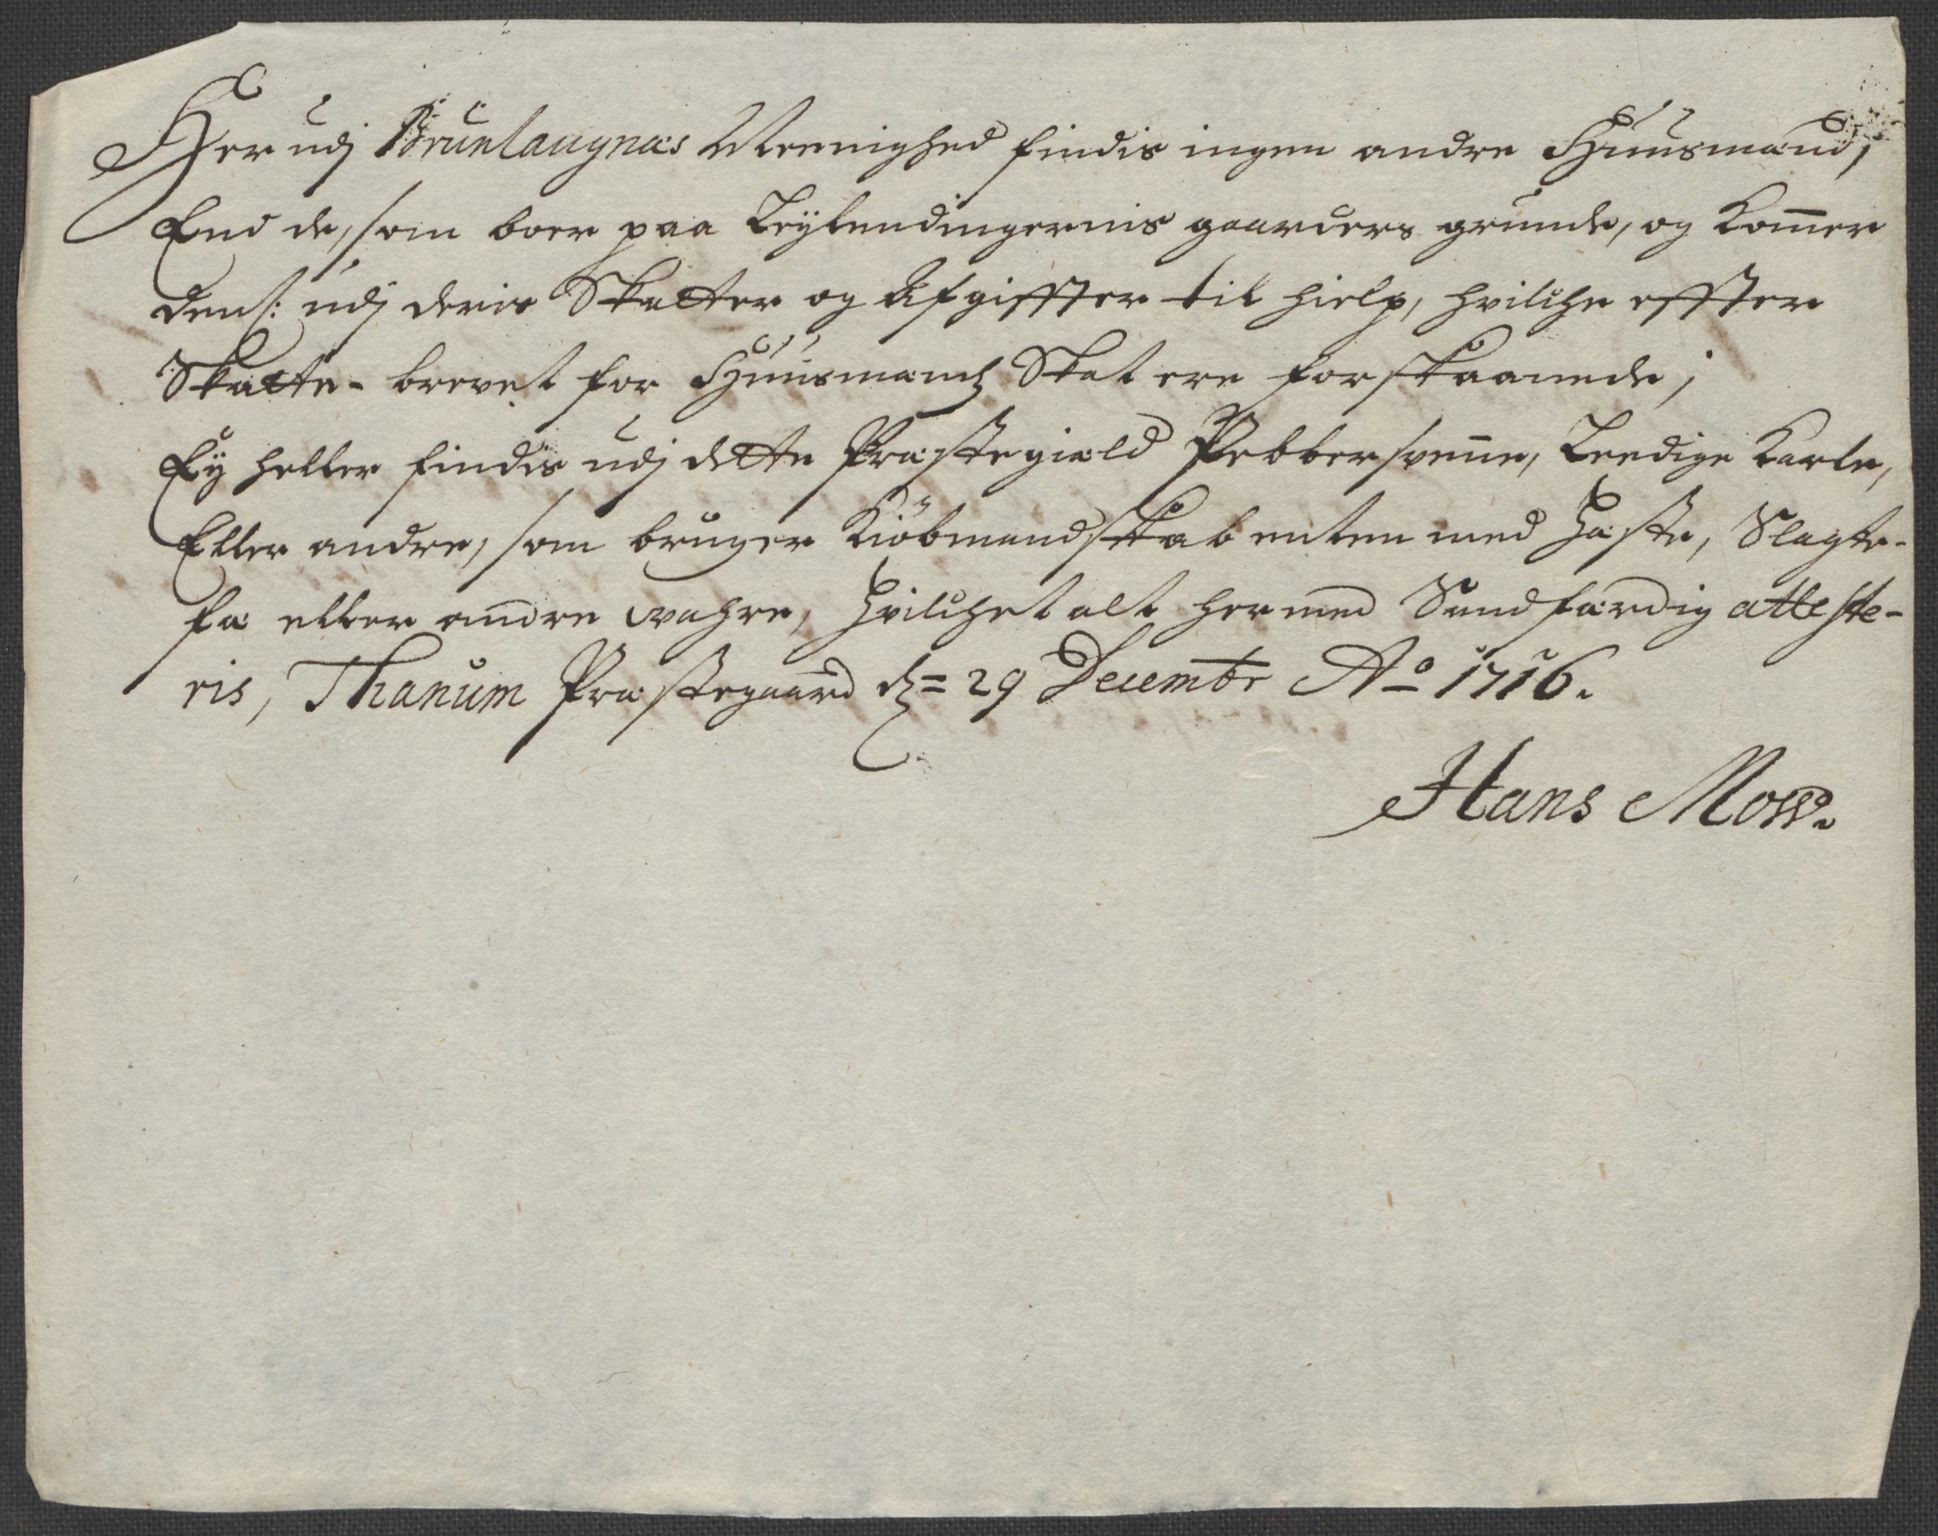 Her udj Brunlaugnæs Meenighed findis ingen andre Huusmænd,
End de, som boer paa Leylendingernis gaarders grunde, og komer
dem /: udj deris Skatter og Afgiffter til hielp, hvilche effter
Skatte-brevet for Huusmænds Skat ere forskaanede;
Ey heller findis udj dette Præstegield Pebbersvene, Leedige Karle,
Eller andre, som bruger Kiöbmandskab enten med Heste, Slagte-
fæ eller andre wahre, Hvilchet alt hermed Sandfærdig atteste-
ris, Thanum Præstegaard d = 29 Decembr Ao 1716.
Hans Mow.